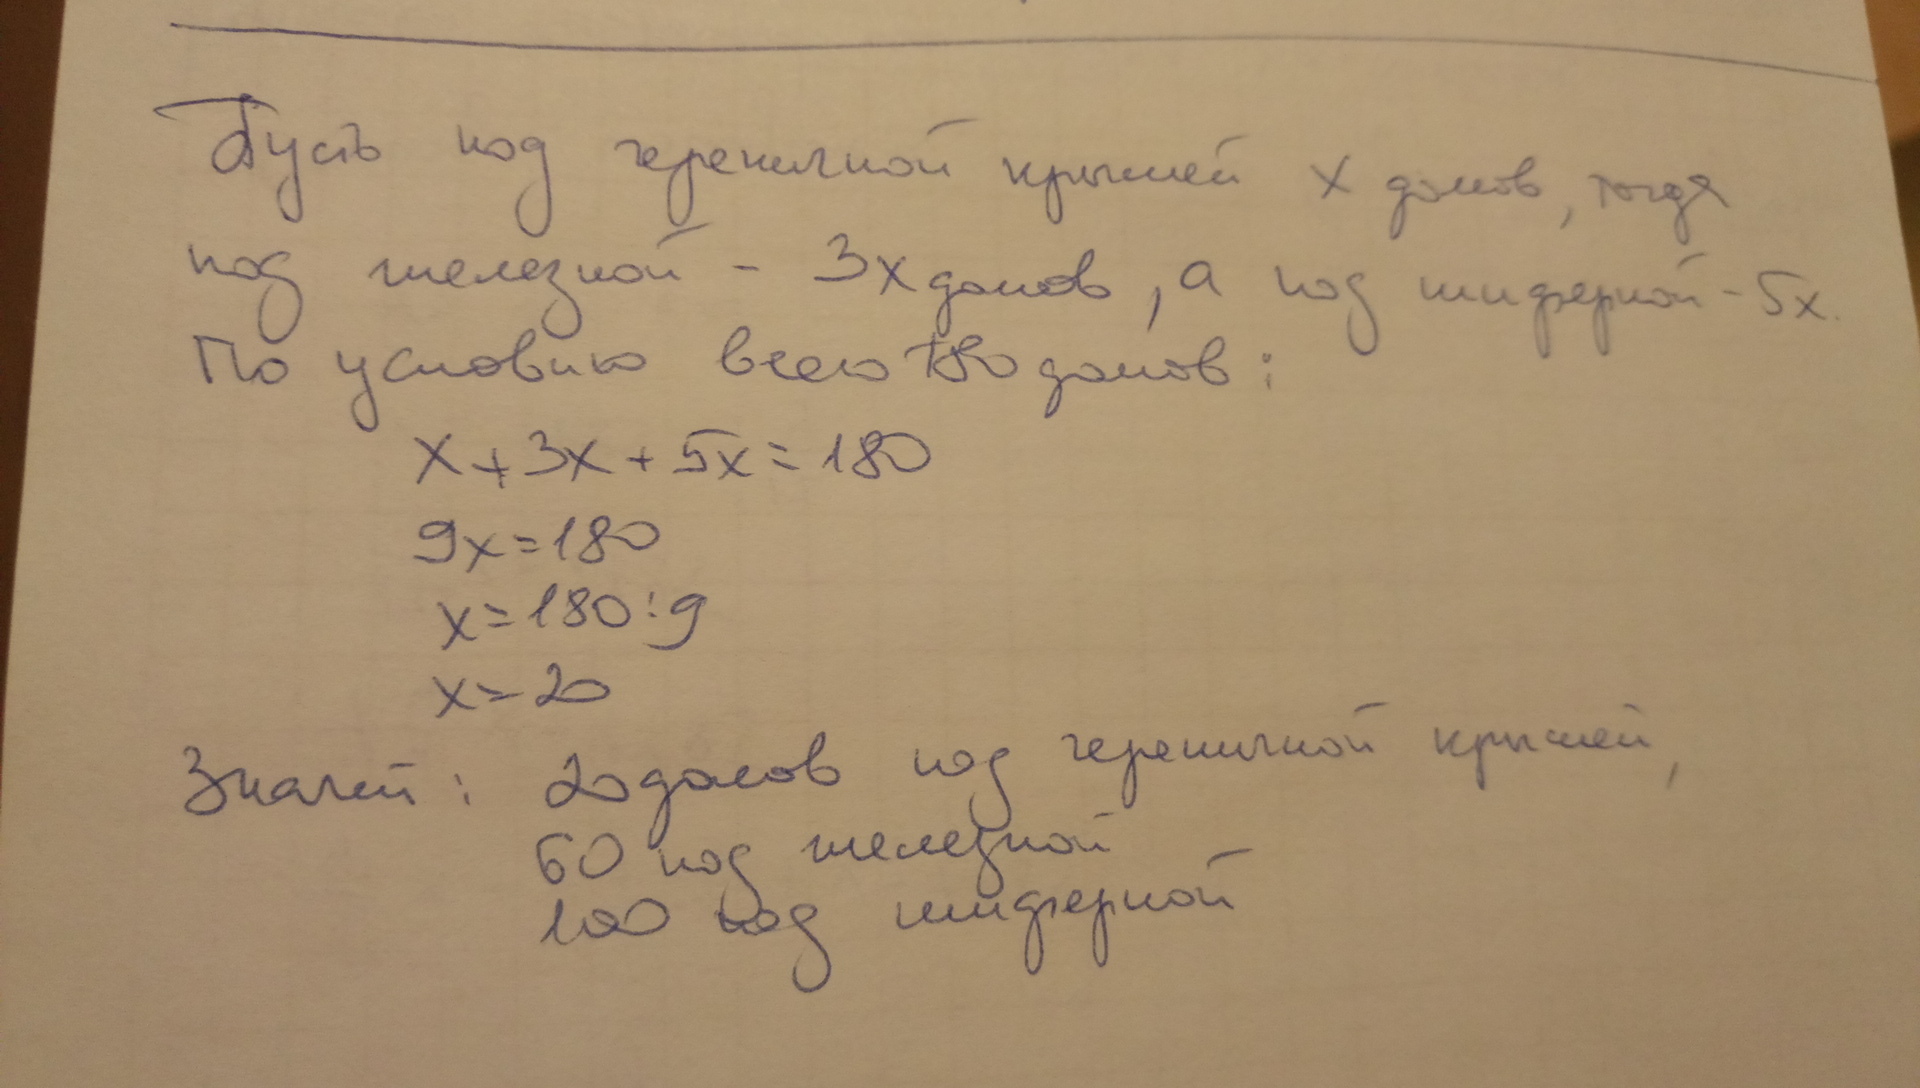 Пусть под черепичной крышей x домов, тогда
под железной - 3x домов, а под шиферной - 5x.
По условию всего 180 домов:
x + 3x + 5x = 180
9x = 180
x = 180 : 9
x = 20
Значит: 20 домов под черепичной крышей,
60 под железной
100 под шиферной